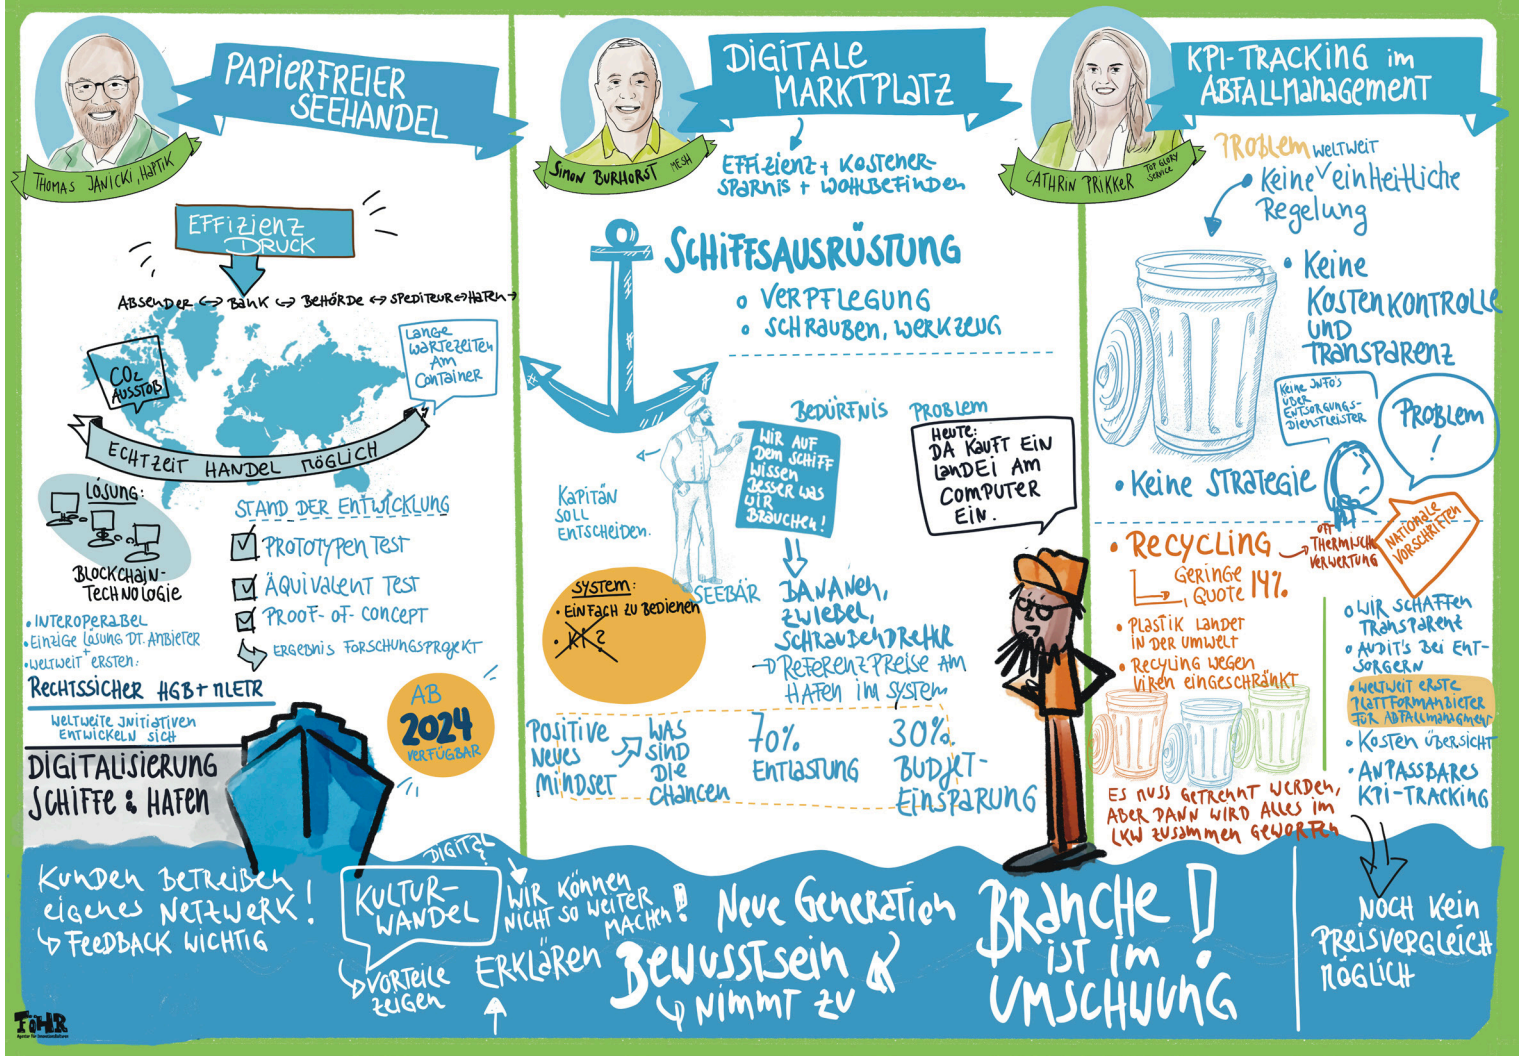 PAPIERFREIER
SEEHANDEL
THOMAS JANICKI, HAPTIK
EFFIZIENZ
DRUCK
ABSENDER ↔ BANK ↔ BEHÖRDE ↔ SPEDITEUR ↔ HAFEN →
CO₂
AUSSTOß
LANGE
WARTEZEITEN
AM
CONTAINER
ECHTZEIT HANDEL MÖGLICH
LÖSUNG:
BLOCKCHAIN-
TECHNOLOGIE
• INTEROPERABEL
• EINZIGE LÖSUNG DT. ANBIETER
+
• WELTWEIT ERSTEN:
RECHTSSICHER HGB + MLETR
WELTWEITE INITIATIVEN
ENTWICKELN SICH
DIGITALISIERUNG
SCHIFFE & HAFEN
STAND DER ENTWICKLUNG
PROTOTYPEN TEST
ÄQUIVALENT TEST
PROOF-OF-CONCEPT
ERGEBNIS FORSCHUNGSPROJEKT
AB
2024
VERFÜGBAR
DIGITALE
MARKTPLATZ
SIMON BURHORST MESH
EFFIZIENZ + KOSTENER-
SPARNIS + WOHLBEFINDEN
SCHIFFSAUSRÜSTUNG
o VERPFLEGUNG
o SCHRAUBEN, WERKZEUG
BEDÜRFNIS
WIR AUF
DEM SCHIFF
WISSEN
BESSER WAS
WIR
BRAUCHEN!
PROBLEM
HEUTE:
DA KAUFT EIN
LANDEI AM
COMPUTER
EIN.
KAPITÄN
SOLL
ENTSCHEIDEN.
SEEBÄR
SYSTEM:
• EINFACH ZU BEDIENEN
• KI?
BANANEN,
ZWIEBEL,
SCHRAUBENDREHER
→ REFERENZPREISE AM
HAFEN IM SYSTEM
POSITIVE
NEUES
MINDSET
WAS
SIND
DIE
CHANCEN
70%
ENTLASTUNG
30%
BUDJET-
EINSPARUNG
KPI-TRACKING im
ABFALLMANAGEMENT
CATHRIN PRIKKER TOP GLORY SERVICE
PROBLEM WELTWEIT
• KEINE EINHEITLICHE
REGELUNG
• KEINE
KOSTENKONTROLLE
UND
TRANSPARENZ
KEINE INFO'S
ÜBER
ENTSORGUNGS-
DIENSTLEISTER
PROBLEM
!
• KEINE STRATEGIE
NATIONALE
VORSCHRIFTEN
• RECYCLING
OFT
THERMISCHE
VERWERTUNG
GERINGE
QUOTE 14%
• PLASTIK LANDET
IN DER UMWELT
• RECYCLING WEGEN
VIREN EINGESCHRÄNKT
ES MUSS GETRENNT WERDEN,
ABER DANN WIRD ALLES IM
LKW ZUSAMMEN GEWORFEN
o WIR SCHAFFEN
TRANSPARENZ
o AUDIT'S BEI ENT-
SORGERN
• WELTWEIT ERSTE
PLATTFORMANBIETER
FÜR ABFALLMANAGMENT
• KOSTEN ÜBERSICHT
• ANPASSBARES
KPI-TRACKING
KUNDEN BETREIBEN
EIGENES NETZWERK!
↳ FEEDBACK WICHTIG
DIGITAL
KULTUR-
WANDEL
↳ VORTEILE
ZEIGEN
WIR KÖNNEN
NICHT SO WEITER
MACHEN!
ERKLÄREN
NEUE GENERATION
BEWUSSTSEIN
↳ NIMMT ZU
BRANCHE!
IST IM
UMSCHWUNG
NOCH KEIN
PREISVERGLEICH
MÖGLICH
FÖHR